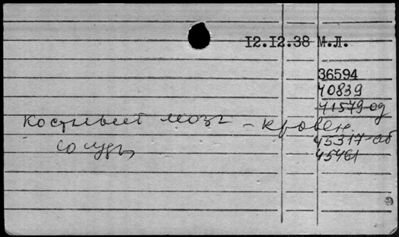 12.12.38 М.Л.
36594
40839
41579-од
костный мозг - кровен.
сосуды
45317-об
45461